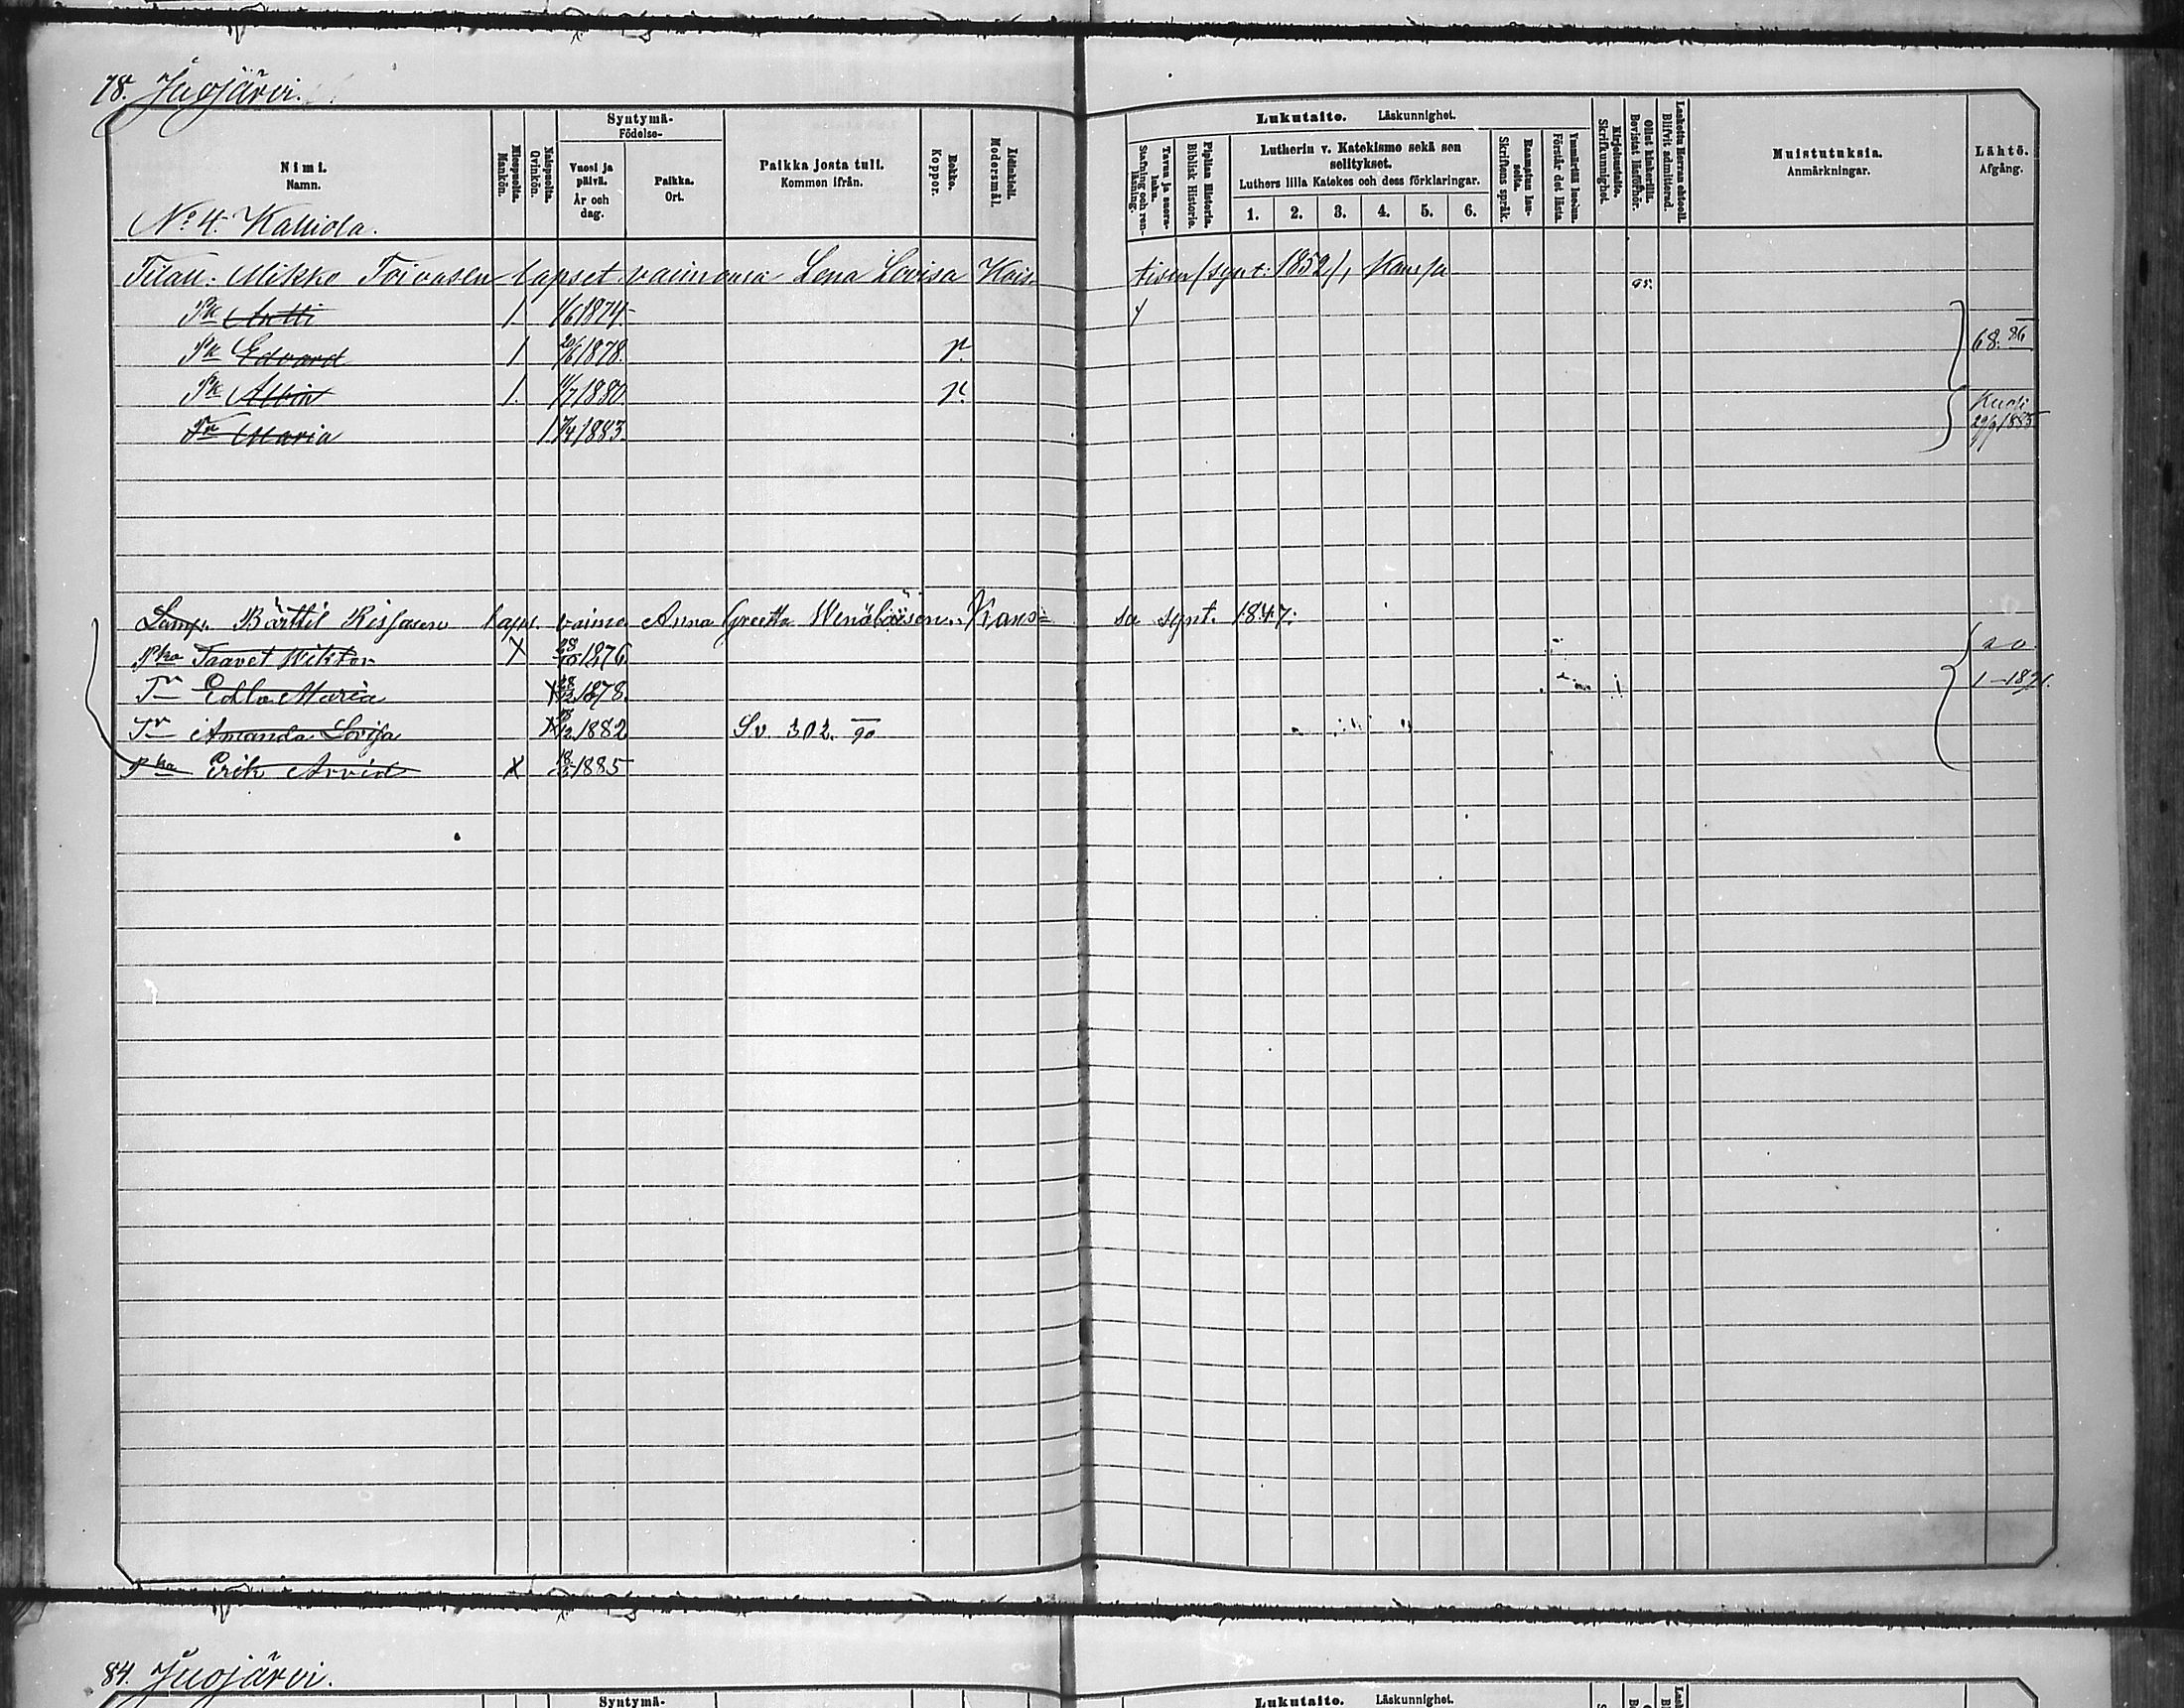 78. Juojärvi.
Nimi.
Namn.
Miespuolia.
Mankön.
Naispuolia.
Qvinkön.
Syntymä-
Födelse-
Vuosi ja
päivä.
År och
dag.
Paikka.
Ort.
Paikka josta tuli.
Kommen ifrån.
Rokko.
Koppor.
Äidinkieli.
Modersmål.
Lukutaito. Läskunnighet.
Tavuu ja suora-
luku.
Stafning och ren-
läsning.
Piplian Historia.
Biblisk Historie.
Lutherin v. Katekismo sekä sen
selitykset.
Luthers lilla Katekes och dess förklaringar.
1. 2. 3. 4. 5. 6.
Raamatun lau-
seita.
Skriftens språk.
Ymmärtää luetun.
Förstår det lästa.
Kirjoitustaito.
Skrifkunnighet.
Ollut kinkerillä.
Bevistat läsförhör.
Laskettu Herran ehtooll.
Blifvit admitterad.
Muistutuksia.
Anmärkningar.
Lähtö.
Afgång.
No 4. Kalliola.
Tilall. Mikko Toivasen lapset vaimonsa Lena Lovisa Kois- tisen (synt. 1852), kanssa
95.
Pk Antti 1 1/6 1874
Pk Edvard 1 20/6 1878. r. 68. 86
Pk Albin 1. 11/7 1880. r.
Tr Maria 1 7/4 1883. 29/9 1885
Lamp. Bärttil Rissasen laps. vaimo Anna Greetta Wenäläisen Kans- sa synt. 1847.
Pka Taavet Wiktor X 28/10 1876
Tr Edla Maria X 1878. 1-1891.
Tr Amanda Lovisa X 1882 S.v. 302. 90
Pka Erik Arvid X 1885
84. Juojärvi.
Syntymä-
Lukutaito. Läskunnighet.